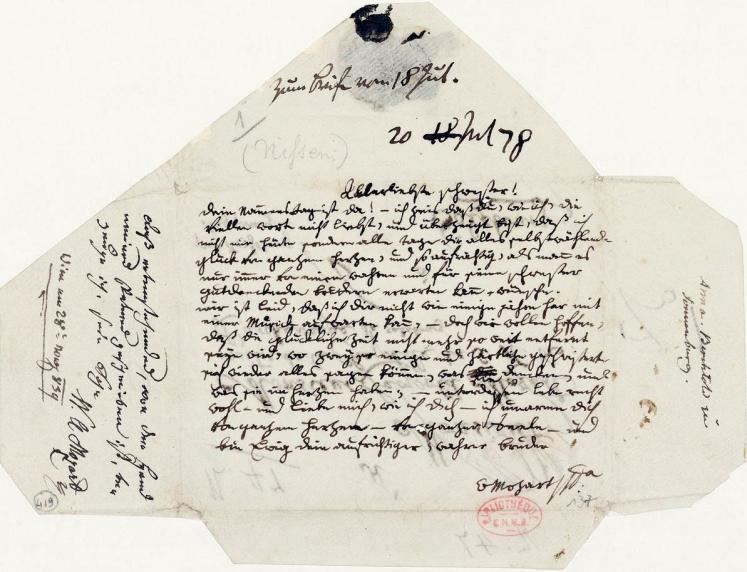 Zum Briefe vom 18 Jul.
20 18 Jul 78
1/
(Nissen:)
Allerliebste schwester!
Dein Nammenstag ist da! – ich weis daß du, wie ich, die
viellen wort nicht liebst, und überzeügt bist, daß ich
nicht nur heüte sondern alle tage dir alles selbst wählende
glück von ganzen herzen, und so aufrichtig, als man es
nur immer von einem wahren und für seine schwester
gutdenckenden brudern erwarten kan, wünsche.
mir ist leid, daß ich dir nicht wie einige jahre her mit
einer Musick aufwarten kan, – doch wir wollen hoffen,
daß die glückliche zeit nicht mehr so weit entfernt
seyn wird, wo zwey so einige und zärtliche geschwisterte
sich wieder alles sagen können, was sie dencken und
was sie im herzen haben, – unterdessen lebe recht
wohl – und liebe mich, wie ich dich – ich umarme dich
von ganzen herzen – von ganzer seele – und
bin Ewig dein aufrichtiger, wahrer bruder
Mozart
daß nebenstehendes von der Hand
meines Vaters geschrieben ist, be
zeuge ich, sein Sohn
W. A. Mozart
Wien am 28t May 839
von Berchtold zu
Sonnenburg.
BIBLIOTHÈQUE
137
419